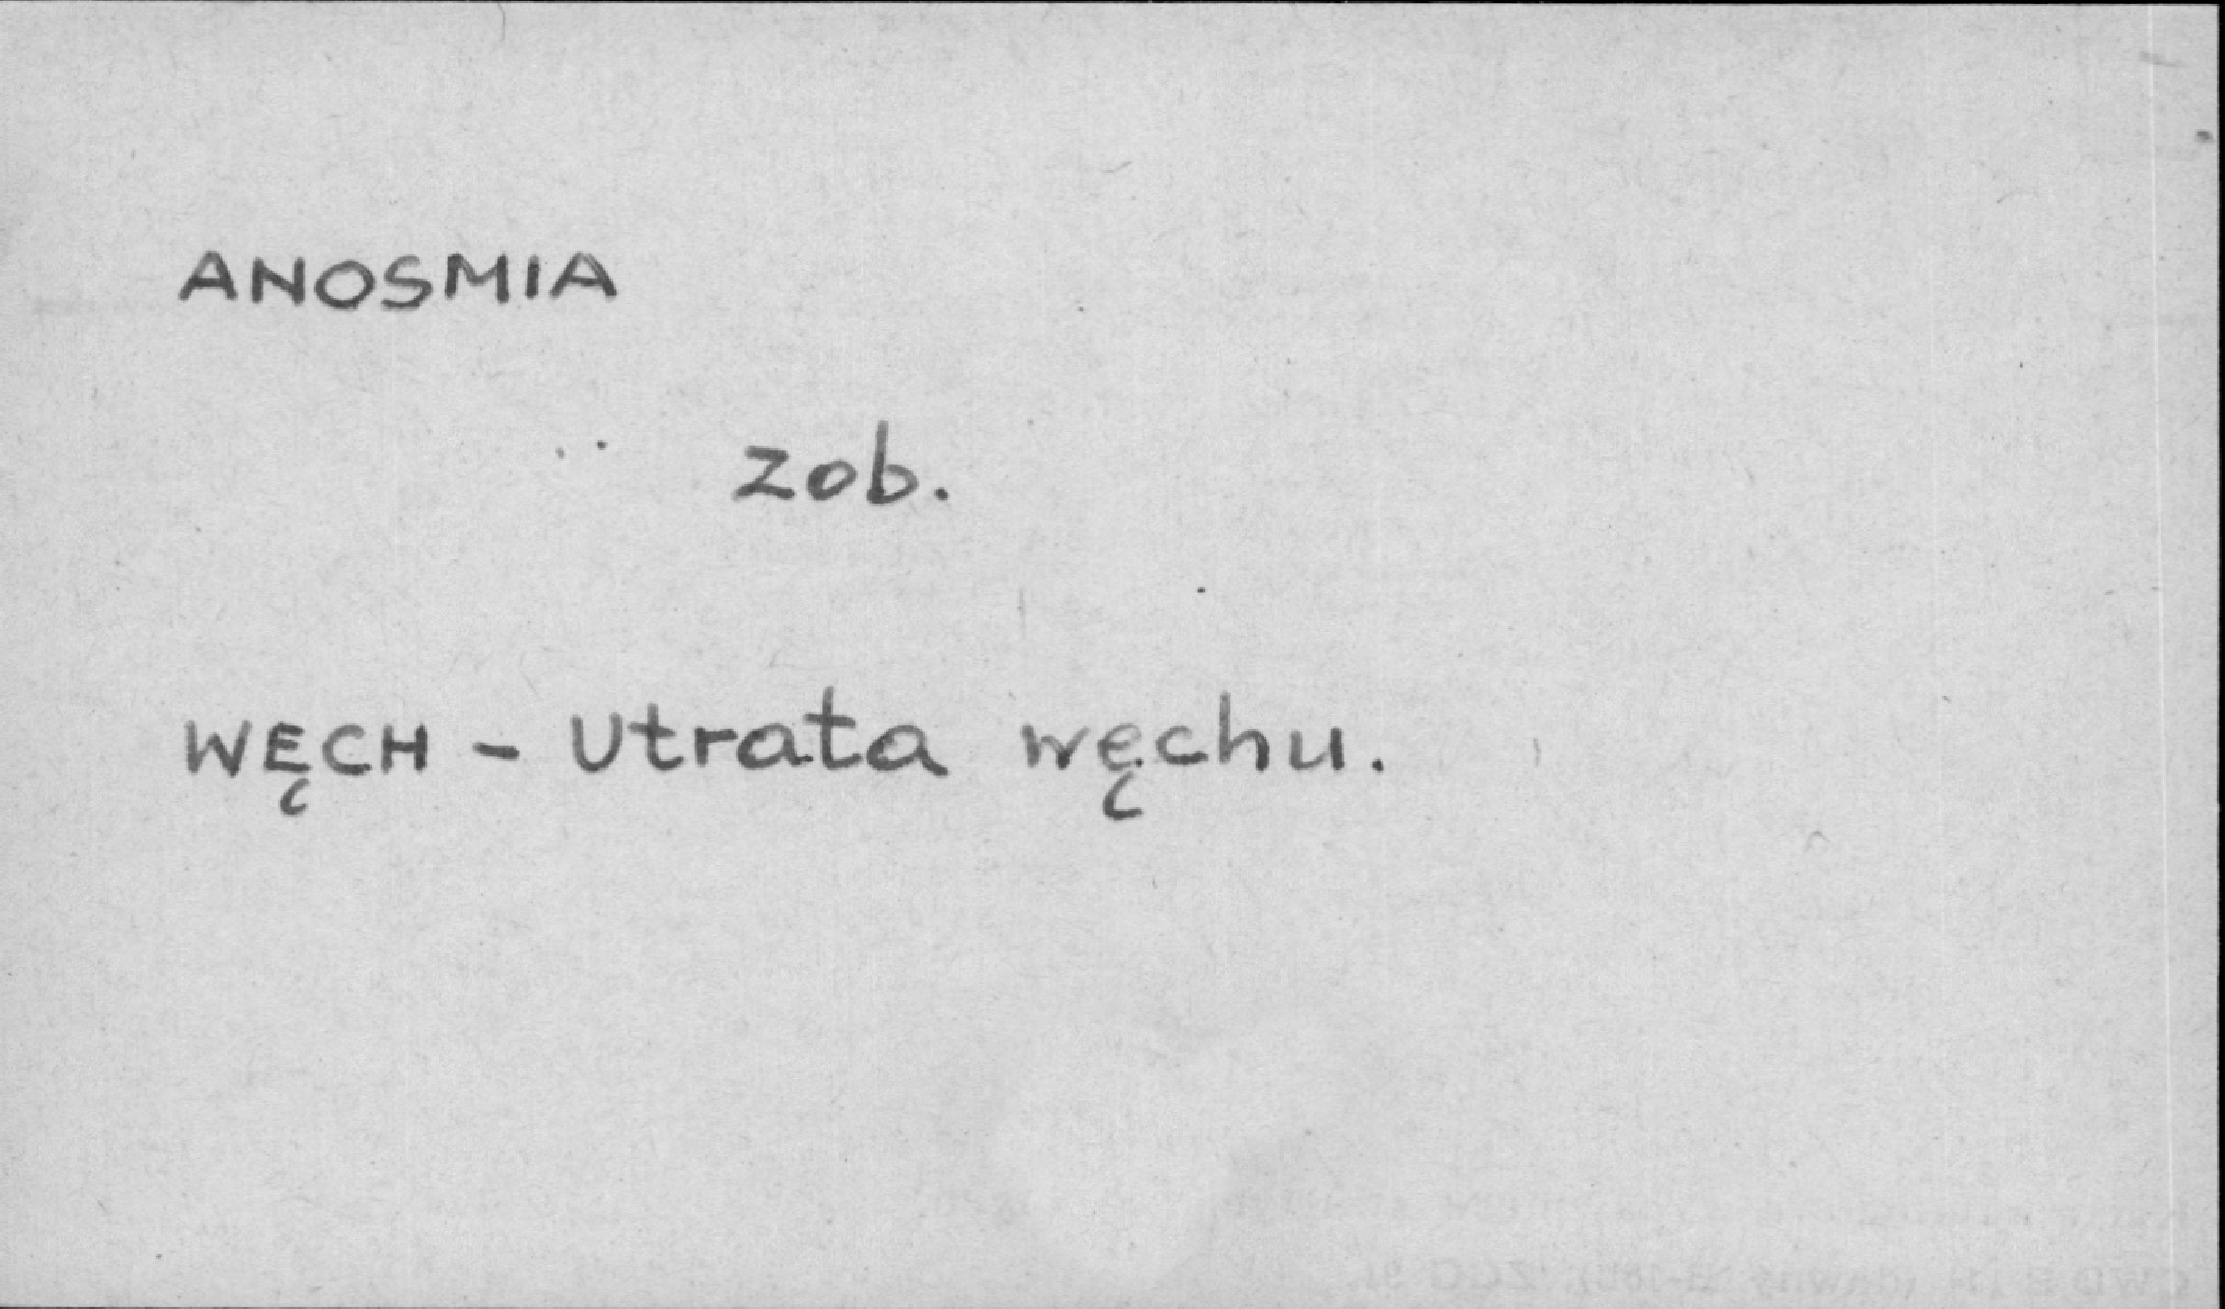 ANOSMIA
zob.
WĘCH - Utrata węchu.